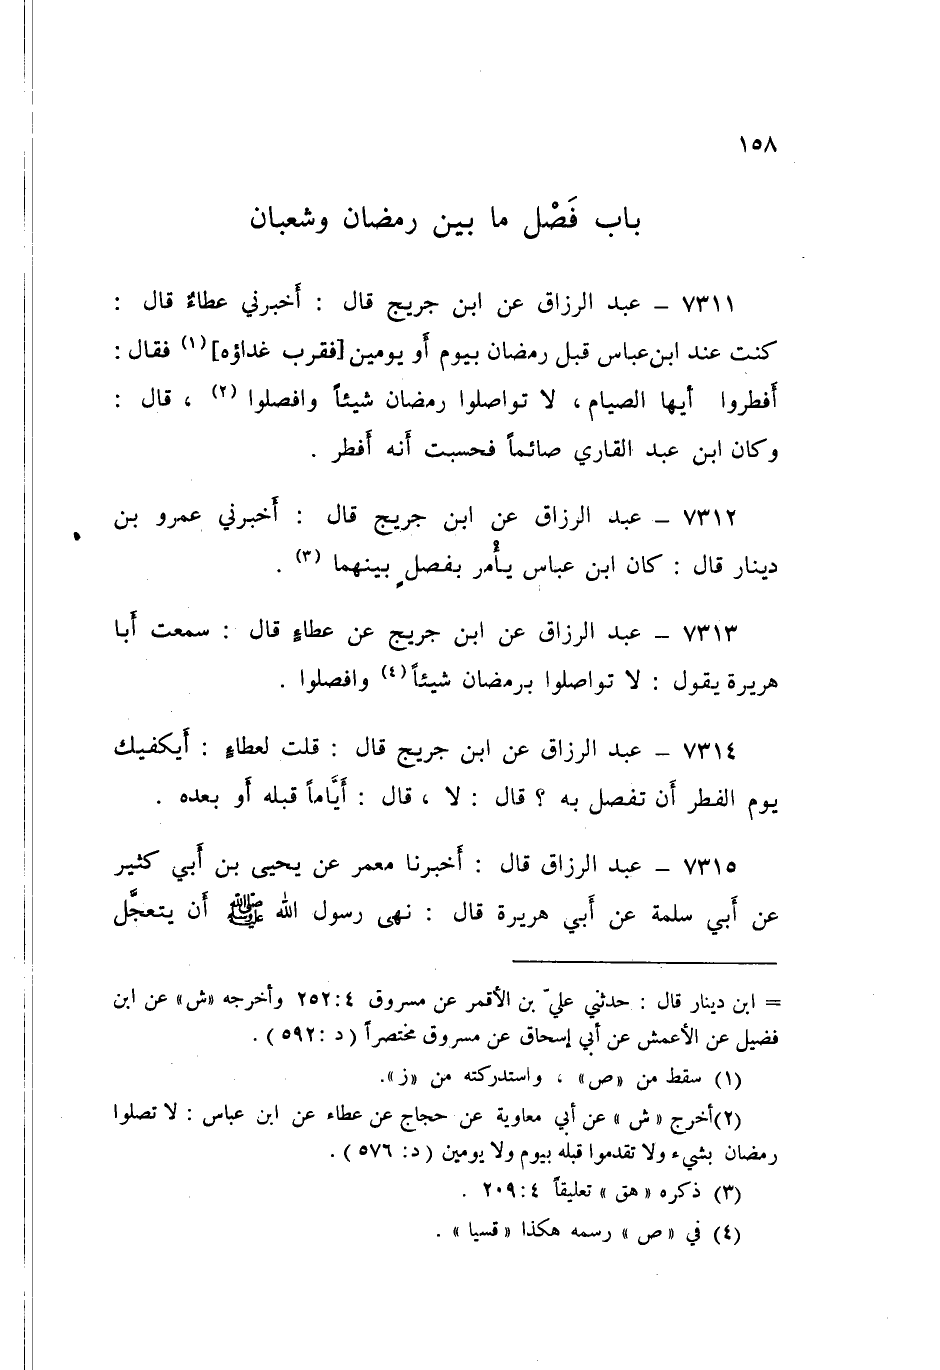 ١٥٨
باب فَصْل ما بين رمضان وشعبان
٧٣١١ – عبد الرزاق عن ابن جريج قال : أَخبرني عطاءٌ قال :
كنت عند ابن عباس قبل رمضان بيوم أَو يومين [فقرب غداؤه] (١) فقال :
أَفطروا أيها الصيام ، لا تواصلوا رمضان شيئاً وافصلوا (٢) ، قال :
وكان ابن عبد القاري صائماً فحسبت أَنه أَفطر .
٧٣١٢ – عبد الرزاق عن ابن جريج قال : أَخبرني عمرو بن
دينار قال : كان ابن عباس يأْمُر بفصلٍ بينهما (٣) .
٧٣١٣ – عبد الرزاق عن ابن جريج عن عطاءٍ قال : سمعت أَبا
هريرة يقول : لا تواصلوا برمضان شيئاً (٤) وافصلوا .
٧٣١٤ – عبد الرزاق عن ابن جريج قال : قلت لعطاءٍ : أَيكفيك
يوم الفطر أَن تفصل به ؟ قال : لا ، قال : أَيَّاماً قبله أَو بعده .
٧٣١٥ – عبد الرزاق قال : أَخبرنا معمر عن يحيى بن أَبي كثير
عن أَبي سلمة عن أَبي هريرة قال : نهى رسول الله ﷺ أَن يتعجَّل
= ابن دينار قال : حدثني عليّ بن الأقمر عن مسروق ٤ : ٢٥٢ وأخرجه «ش» عن ابن
فضيل عن الأعمش عن أبي إسحاق عن مسروق مختصراً ( د : ٥٩٢ ) .
(١) سقط من «ص» ، واستدركته من «ز».
(٢) أخرج « ش » عن أبي معاوية عن حجاج عن عطاء عن ابن عباس : لا تصلوا
رمضان بشيء ولا تقدموا قبله بيوم ولا يومين ( د : ٥٧٦ ) .
(٣) ذكره « هق » تعليقاً ٤ : ٢٠٩ .
(٤) في « ص » رسمه هكذا « قسيا » .